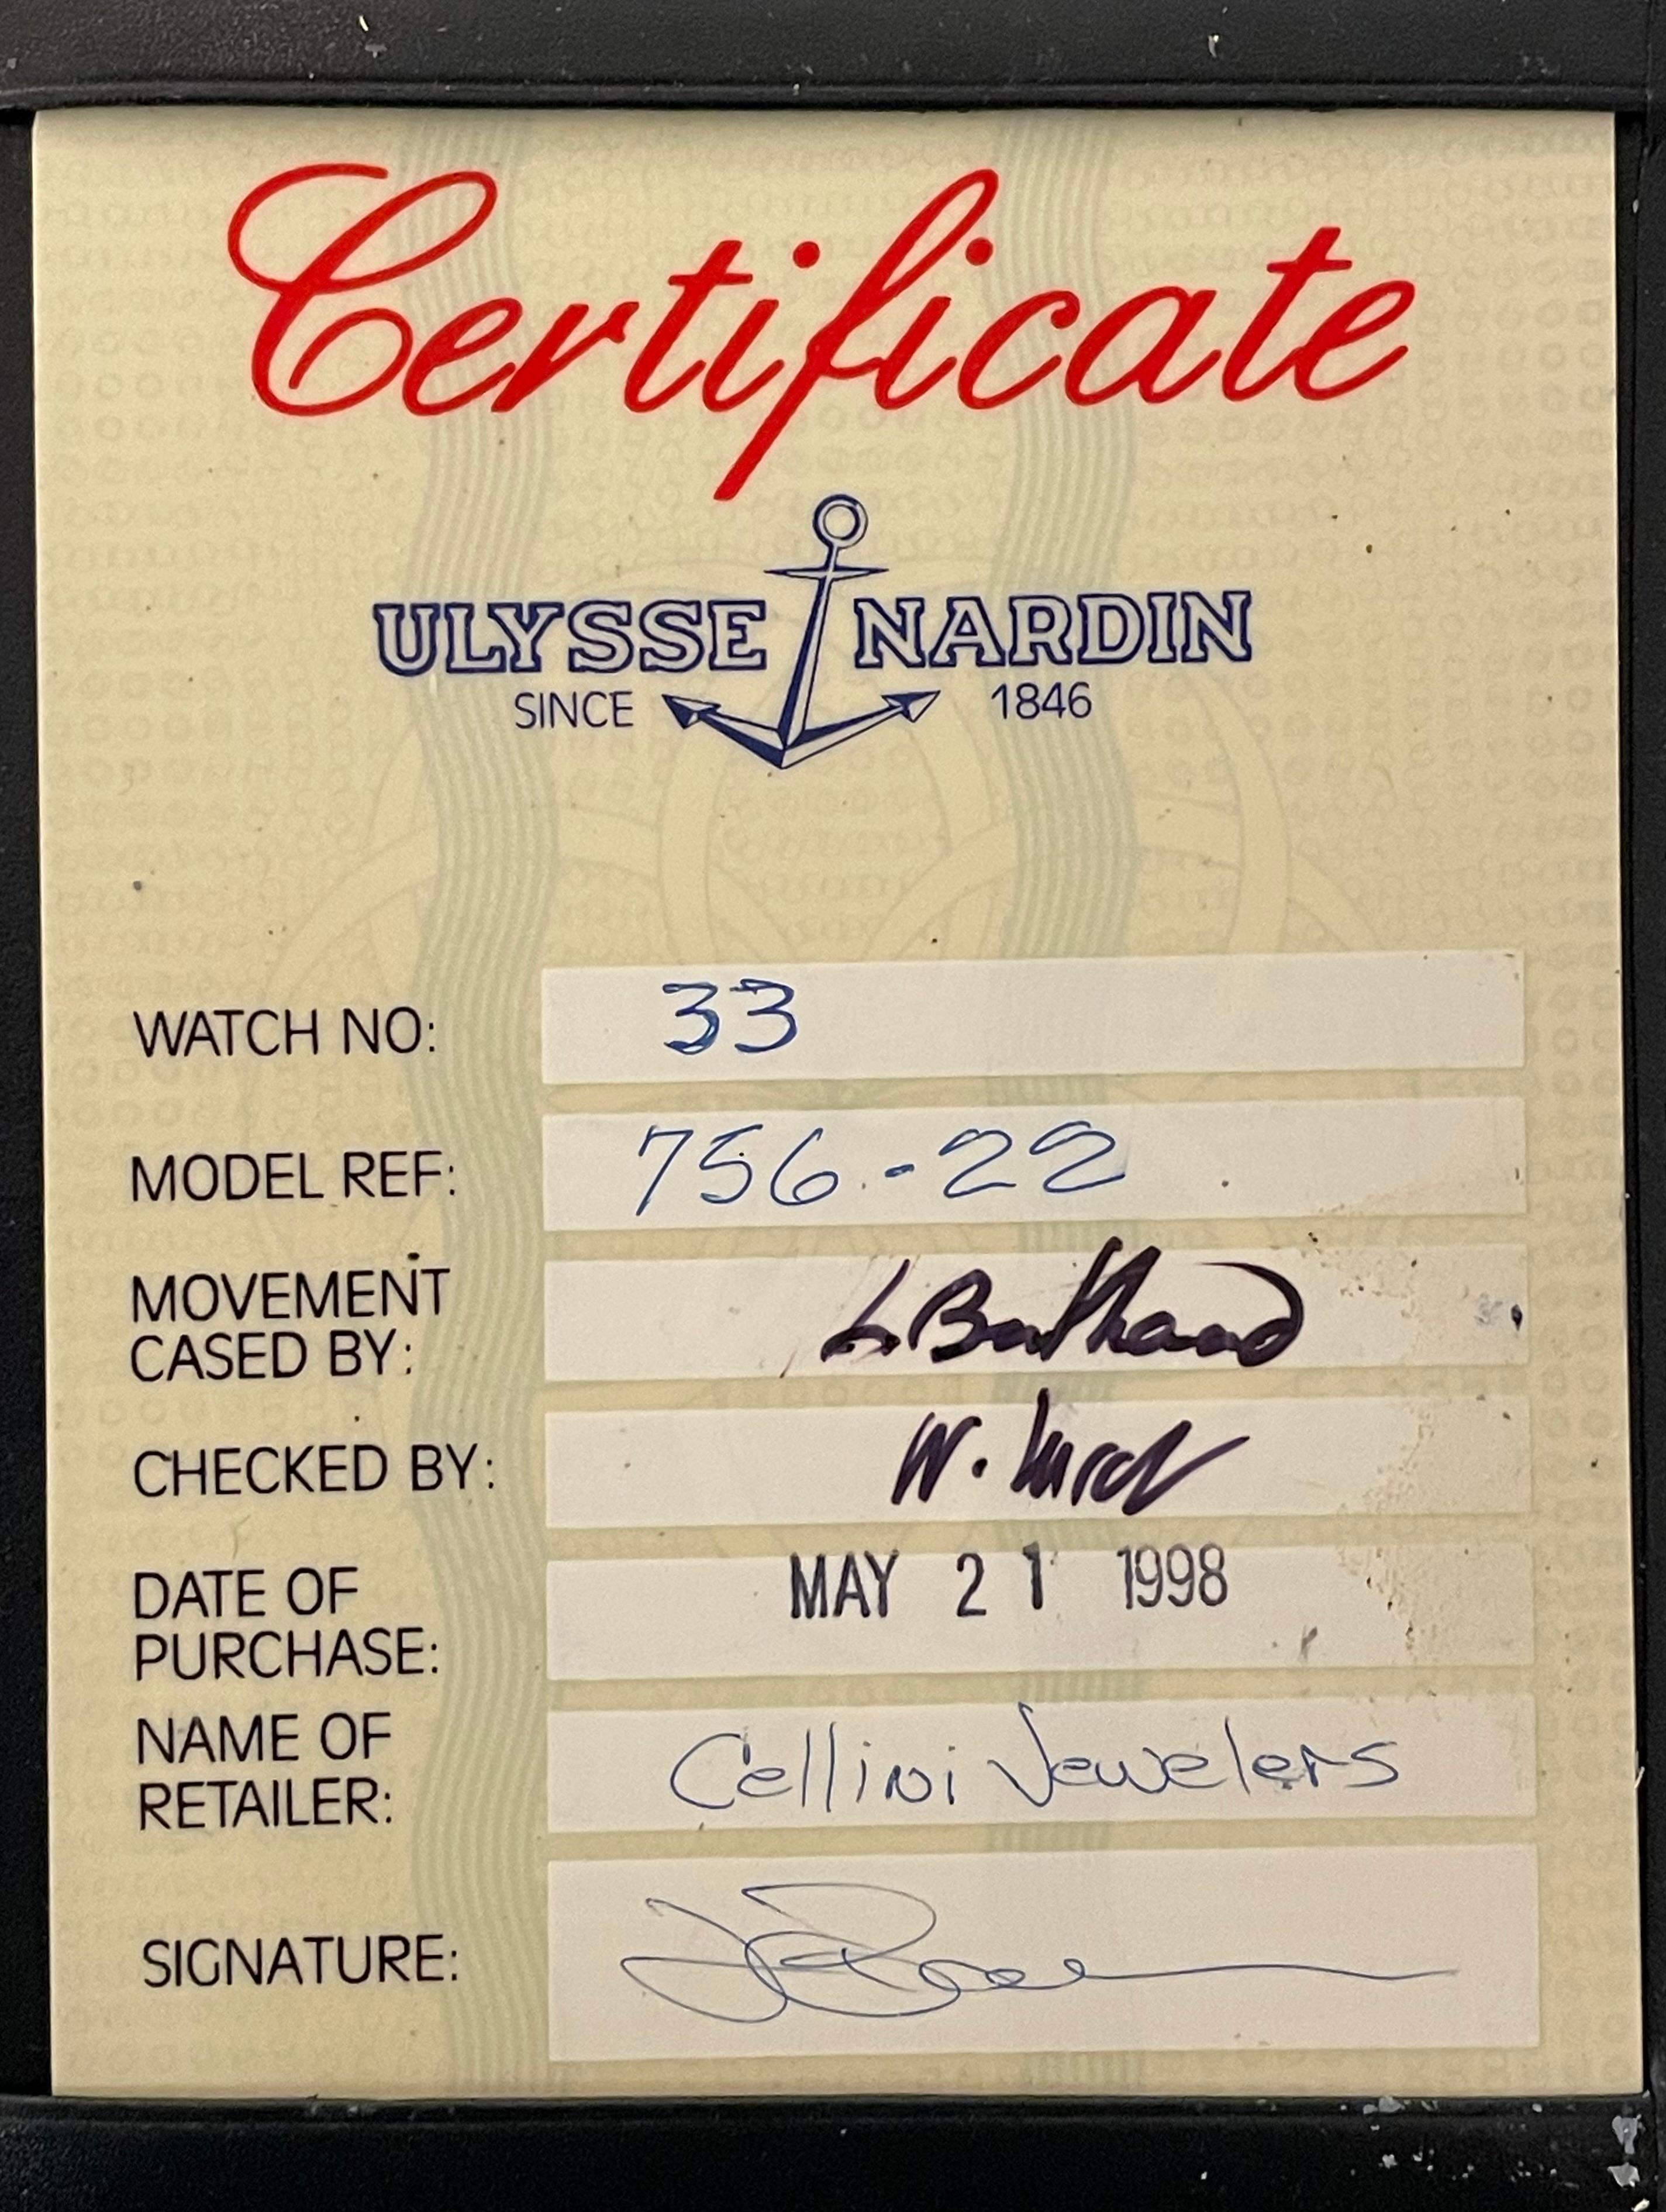 Certificate
ULYSSE NARDIN
SINCE 1846
WATCH NO: 33
MODEL REF: 756-22
MOVEMENT
CASED BY:
CHECKED BY: W.
DATE OF
PURCHASE: MAY 21 1998
NAME OF
RETAILER: Cellini Jewelers
SIGNATURE: